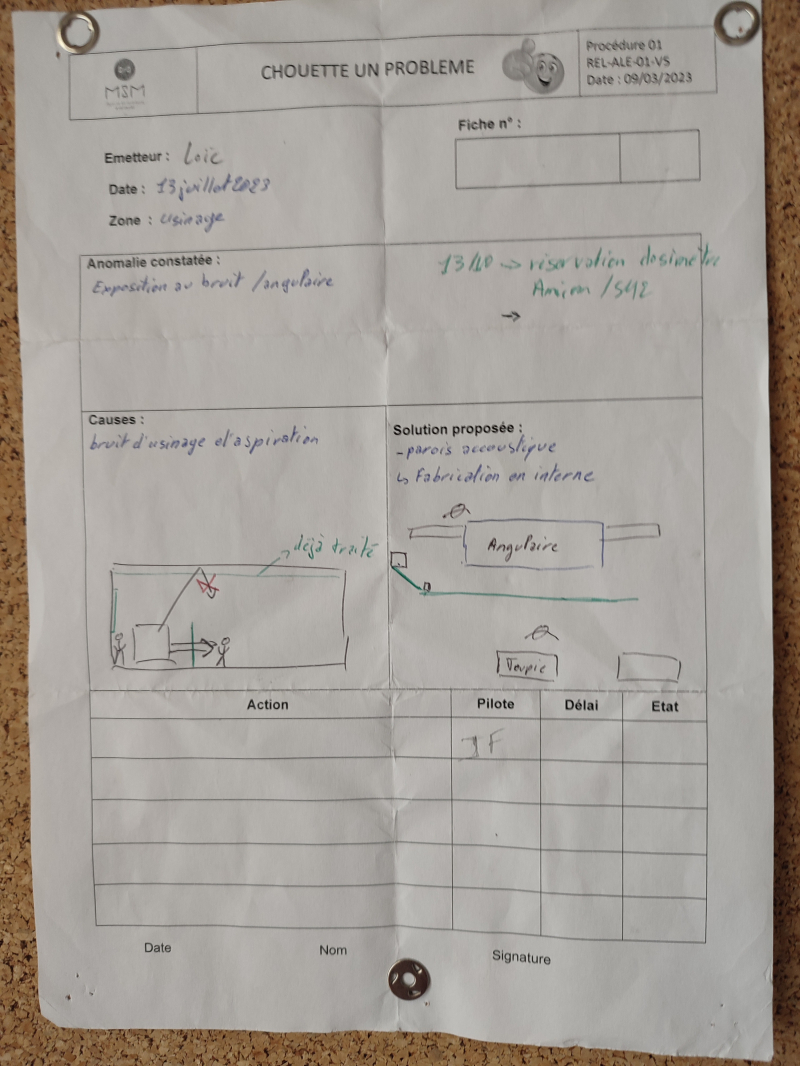 MSM
CHOUETTE UN PROBLEME
Procédure 01
REL-ALE-01-VS
Date : 09/03/2023
Fiche n° :
Emetteur : Loïc
Date : 13 juillet 2023
Zone : Usinage
Anomalie constatée :
Exposition au bruit / angulaire
13/10 → réservation dosimètre
→
Causes :
bruit d'usinage et aspiration
déjà traité
Solution proposée :
- parois accoustique
↳ Fabrication en interne
Angulaire
Toupie
Action Pilote Délai Etat
JF
Date Nom Signature